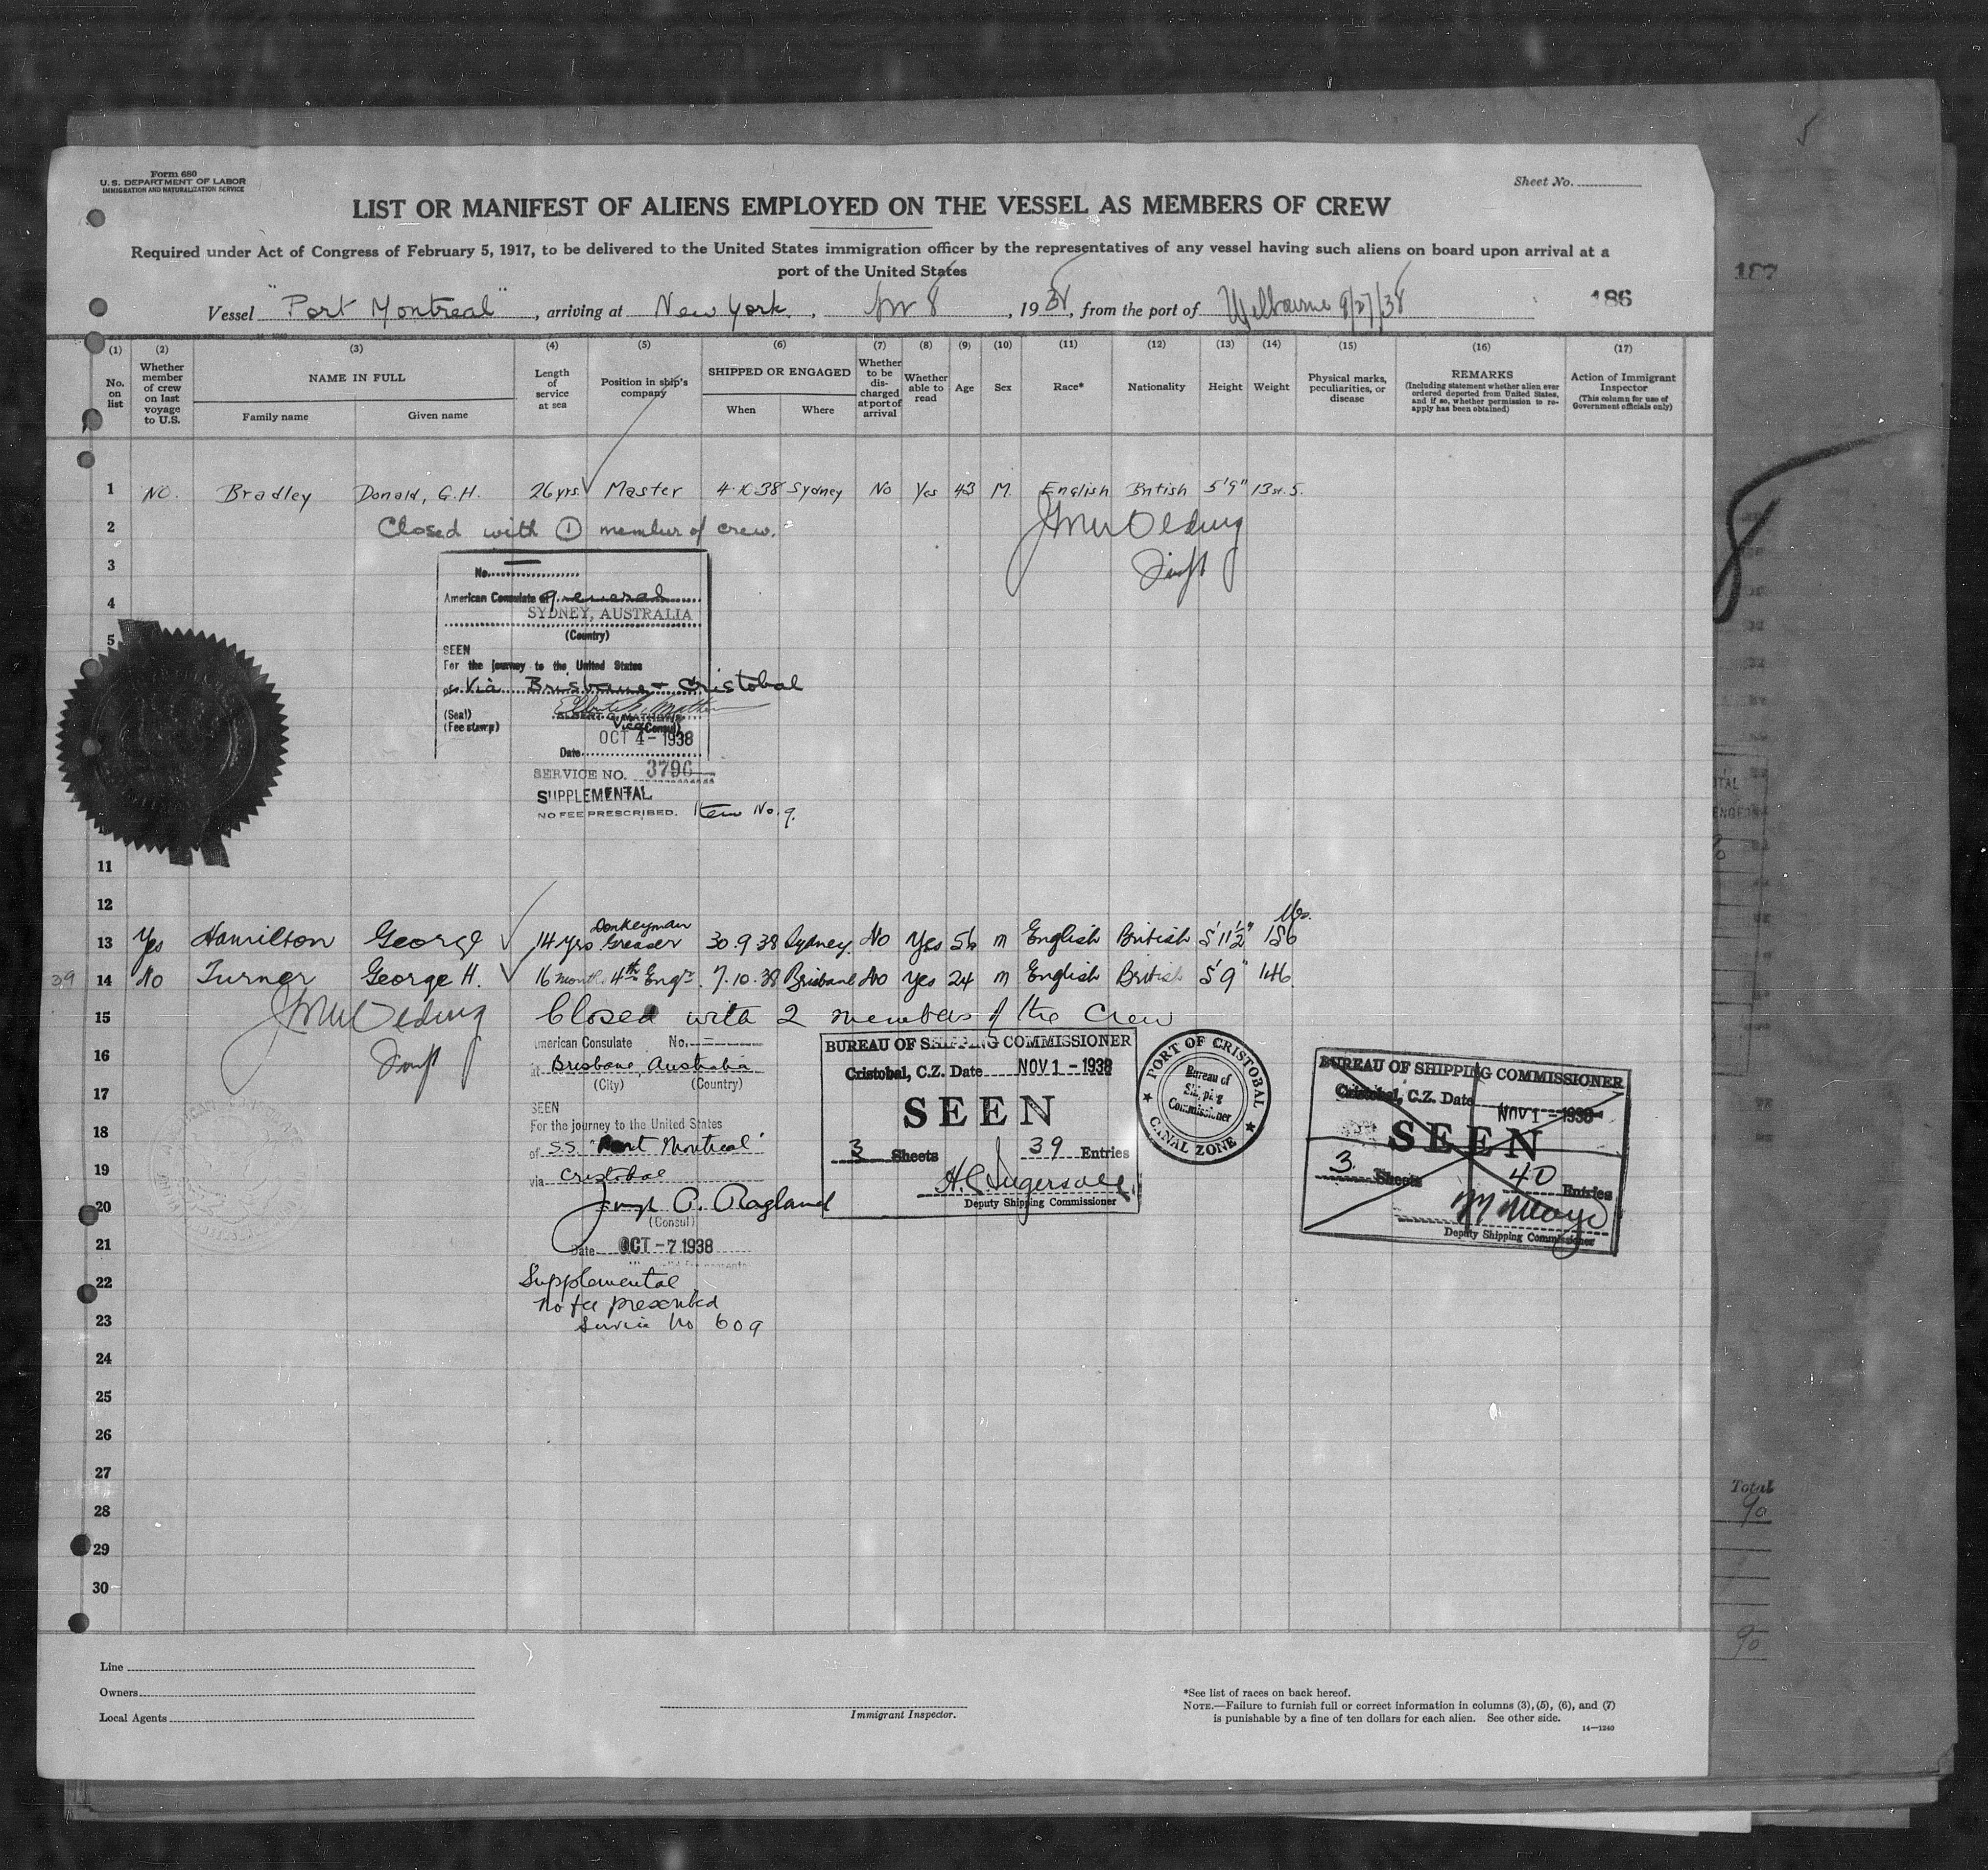 5
Form 680
U. S. DEPARTMENT OF LABOR
IMMIGRATION AND NATURALIZATION SERVICE
Sheet No.
LIST OR MANIFEST OF ALIENS EMPLOYED ON THE VESSEL AS MEMBERS OF CREW
Required under Act of Congress of February 5, 1917, to be delivered to the United States immigration officer by the representatives of any vessel having such aliens on board upon arrival at a
port of the United States
187
186
Vessel "Port Montreal", arriving at New York, Nov 8, 1938, from the port of Melbourne 9/27/38
(1) (2) (3) (4) (5) (6) (7) (8) (9) (10) (11) (12) (13) (14) (15) (16) (17)
No. on list
Whether member of crew on last voyage to U.S.
NAME IN FULL
Family name
Given name
Length of service at sea
Position in ship's company
SHIPPED OR ENGAGED
When
Where
Whether to be discharged at port of arrival
Whether able to read
Age
Sex
Race*
Nationality
Height
Weight
Physical marks, peculiarities, or disease
REMARKS
(Including statement whether alien ever ordered deported from United States, and if so, whether permission to re-apply has been obtained)
Action of Immigrant Inspector
(This column for use of Government officials only)
1 No. Bradley Donald, G.H. 26 yrs. Master 4.10.38 Sydney No Yes 43 M. English British 5'9" 13 st. 5.
2 Closed with 1 member of crew.
3
No.
4
American Consulate General
SYDNEY, AUSTRALIA
5
(Country)
SEEN
For the journey to the United States
Via Brisbane & Cristobal
(Seal)
(Fee stamp)
Vice Consul
OCT 4 - 1938
Date
SERVICE NO. 3796
SUPPLEMENTAL
NO FEE PRESCRIBED. Item No. 9.
11
12
13 Yes Hamilton George 14 yrs Donkeyman Greaser 30.9.38 Sydney. No Yes 56 m English British 5'11½" 186 lbs.
39 14 No Turner George H. 16 months 4th Engr. 7.10.38 Brisbane No Yes 24 m English British 5'9" 146
15 Closed with 2 members of the Crew
16
American Consulate No.
at Brisbane, Australia
(City) (Country)
17
SEEN
For the journey to the United States
18
of S.S. "Port Montreal"
19
via Cristobal
20
Joseph P. Ragland
(Consul)
21
Date OCT - 7 1938
22
Supplemental
no fee prescribed
23
Service No 609
BUREAU OF SHIPPING COMMISSIONER
Cristobal, C.Z. Date NOV 1 - 1938
SEEN
3 Sheets 39 Entries
H.C. Ingersoll
Deputy Shipping Commissioner
PORT OF CRISTOBAL
Bureau of Shipping Commissioner
CANAL ZONE
BUREAU OF SHIPPING COMMISSIONER
Cristobal, C.Z. Date NOV 1 - 1938
SEEN
3 Sheets 40 Entries
Deputy Shipping Commissioner
24
25
26
27
28
29
30
Total
90
90
Line
Owners
Local Agents
Immigrant Inspector.
*See list of races on back hereof.
NOTE.—Failure to furnish full or correct information in columns (3), (5), (6), and (7)
is punishable by a fine of ten dollars for each alien. See other side.
14—1240